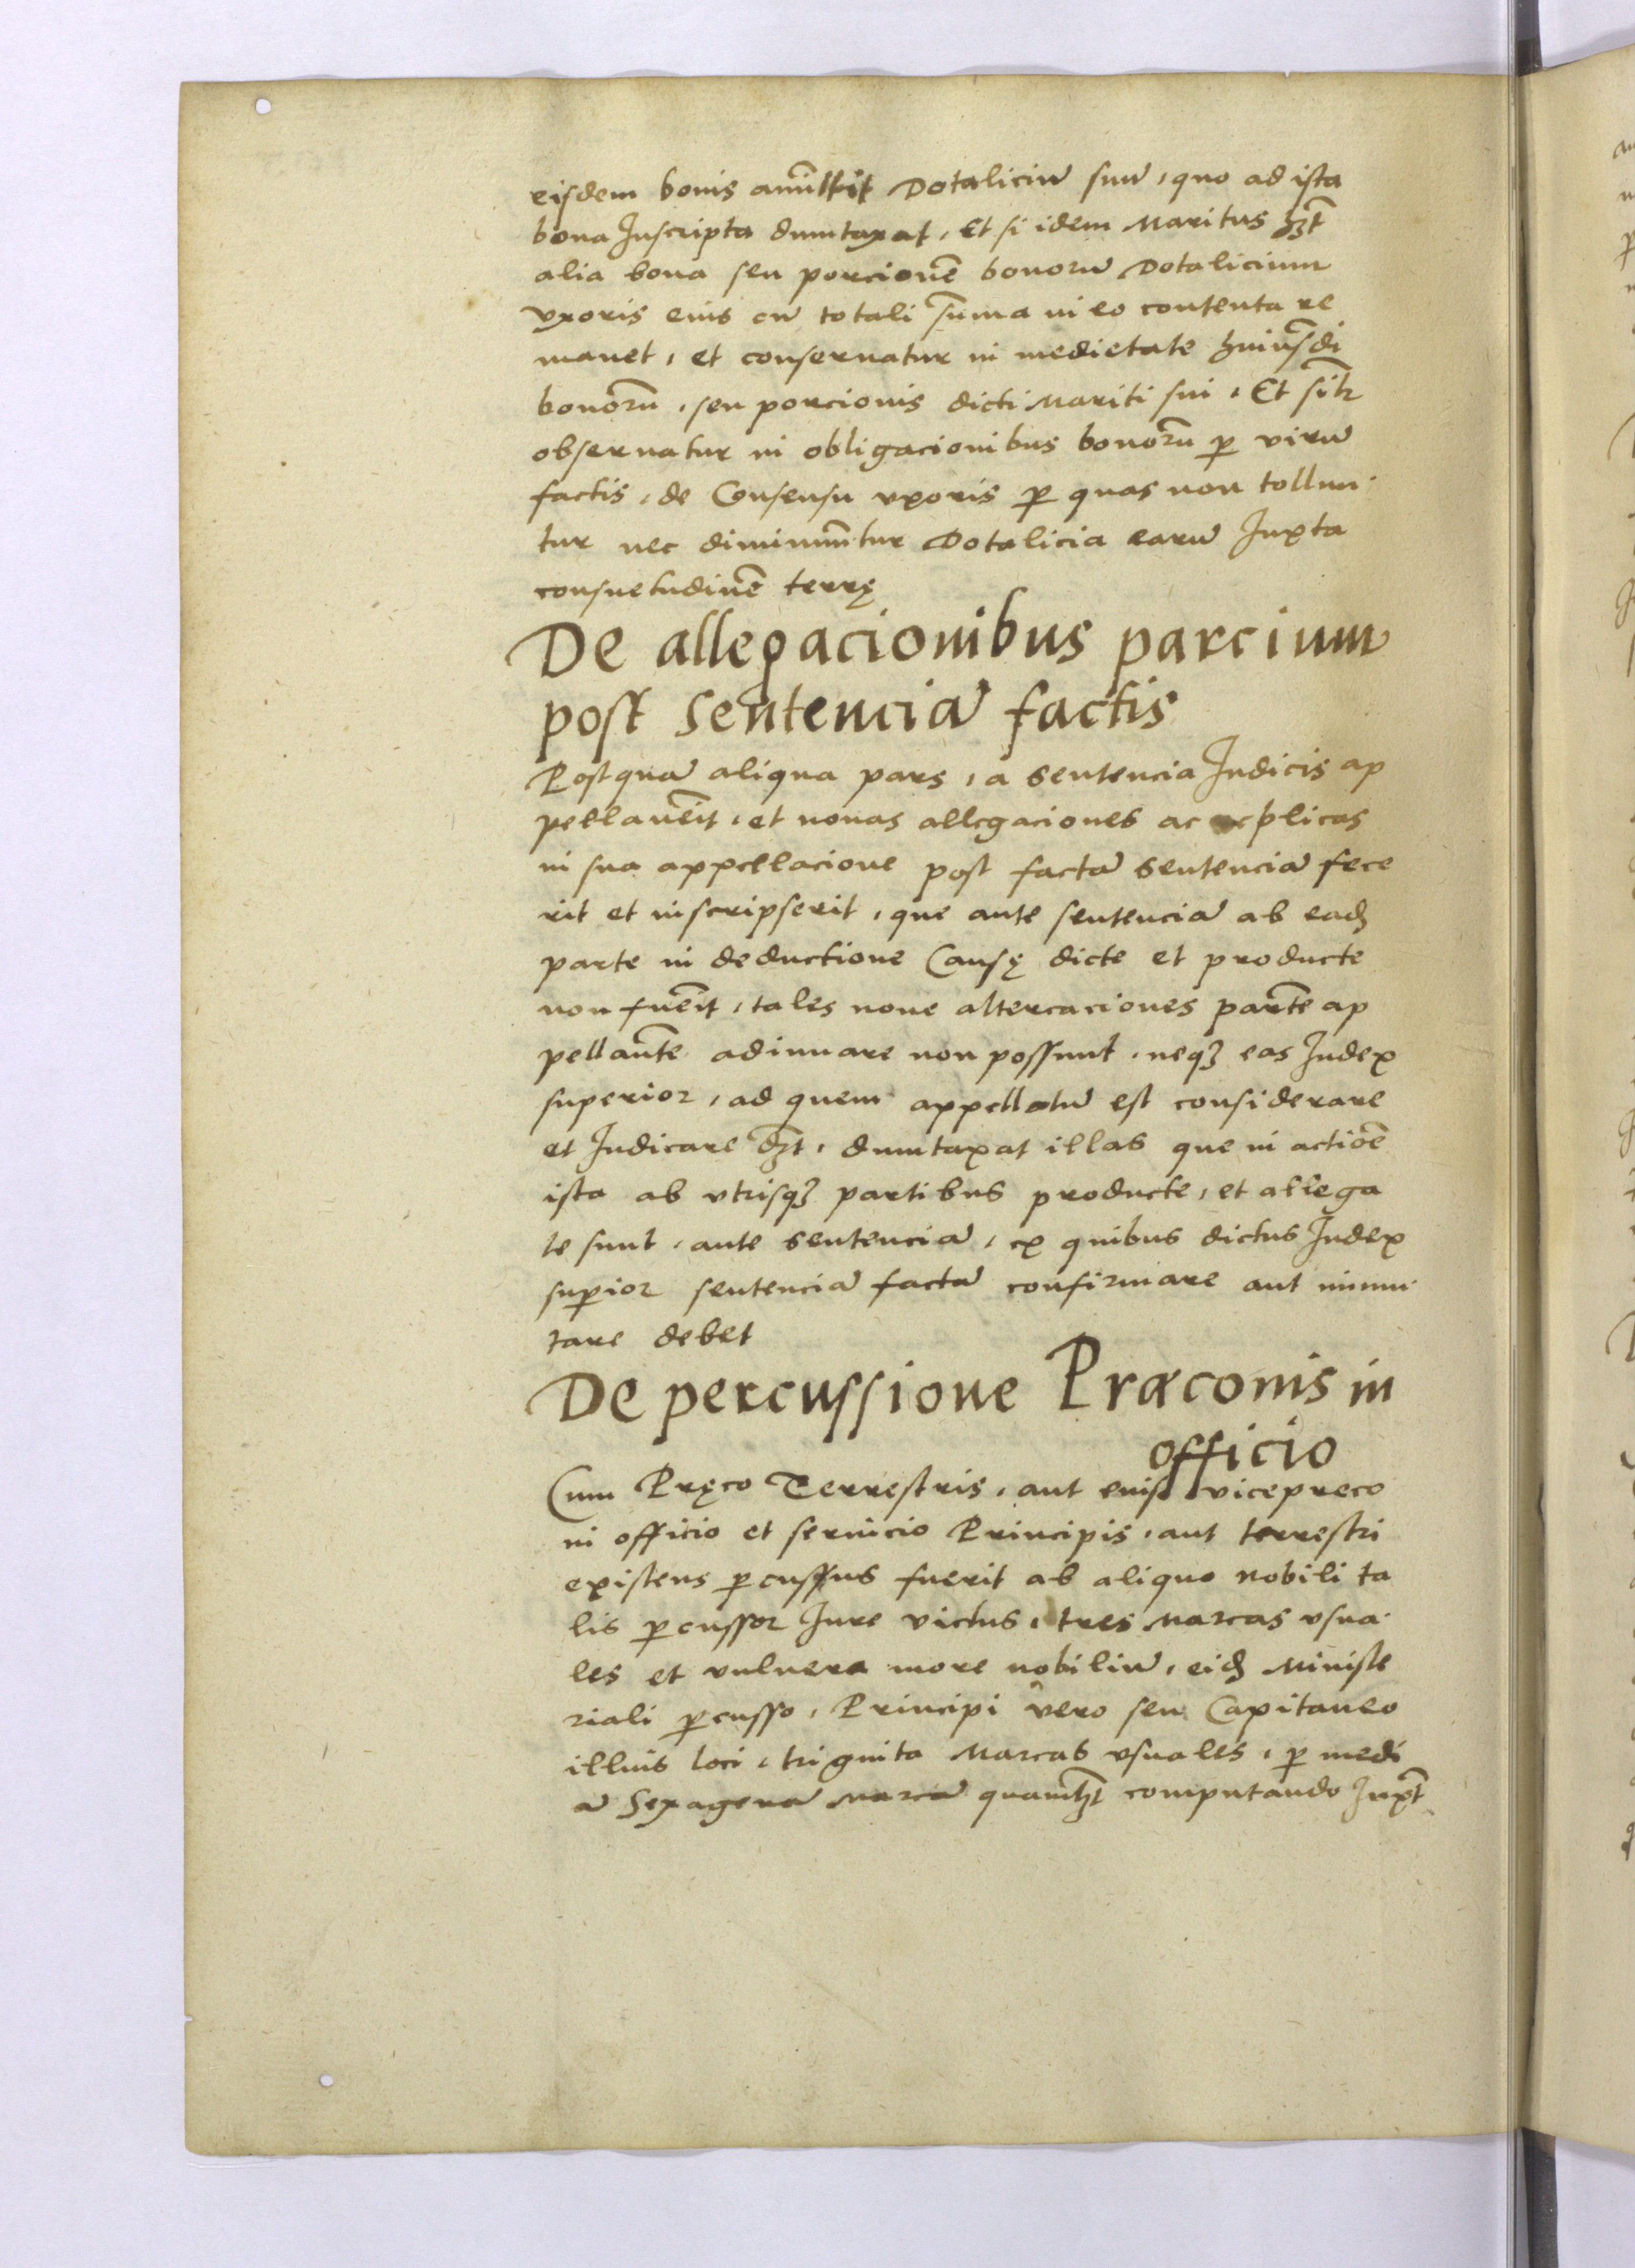 eisdem bonis amittit Dotaliciū suū, quo ad ista
bona Inscripta dumtaxat, Et si idem Maritus hꝫt
alia bona seu porcionē bonorū Dotalicium
vxoris eius cū totali sum̄a in eo contenta re
manet, et conseruatur in medietate huiusm̄di
bonorū, seu porcionis dicti Mariti sui, Et sil̄r
obseruatur in obligacionibus bonorū ꝑ virū
factis, de Consensu vxoris ꝑ quas non tollun-
tur nec diminuūtur Dotalicia earū Juxta
consuetudinē terrę
De allegacionibus parcium
post sentenciā factis
Postquā aliqua pars, a sentencia Judicis ap
pellauēit, et nouas allegaciones ac replicas
in sua appellacione post factā sentenciā fece
rit et inscripserit, que ante sentenciā ab eadꝫ
parte in deductione Causę dicte et producte
non fuēit, tales noue altercaciones partē ap
pellantē adiuuare non possunt, neqꝫ eas Judex
superior, ad quem appellatū est considerare
et Judicare dꝫt, dumtaxat illas que in actiōe
ista ab vtrisqꝫ partibus producte, et allega
te sunt, ante sentenciā, ex quibus dictus Judex
suꝑior sentenciā factā confirmare aut immu-
tare debet
De percussione Præconis in
officio
Cum Pręco Terrestris, aut eius vicepreco
in officio et seruicio Principis, aut terrestri
existens ꝑcussus fuerit ab aliquo nobili ta
lis ꝑcussor Jure victus, tres Marcas vsua-
les et vulnera more nobiliū, eidꝫ Ministe
riali ꝑcusso, Principi vero seu Capitaneo
illius loci, triginta Marcas vsuales, ꝑ medi
ā Sexagenā Marcā quamlꝫt computando Juxt̄